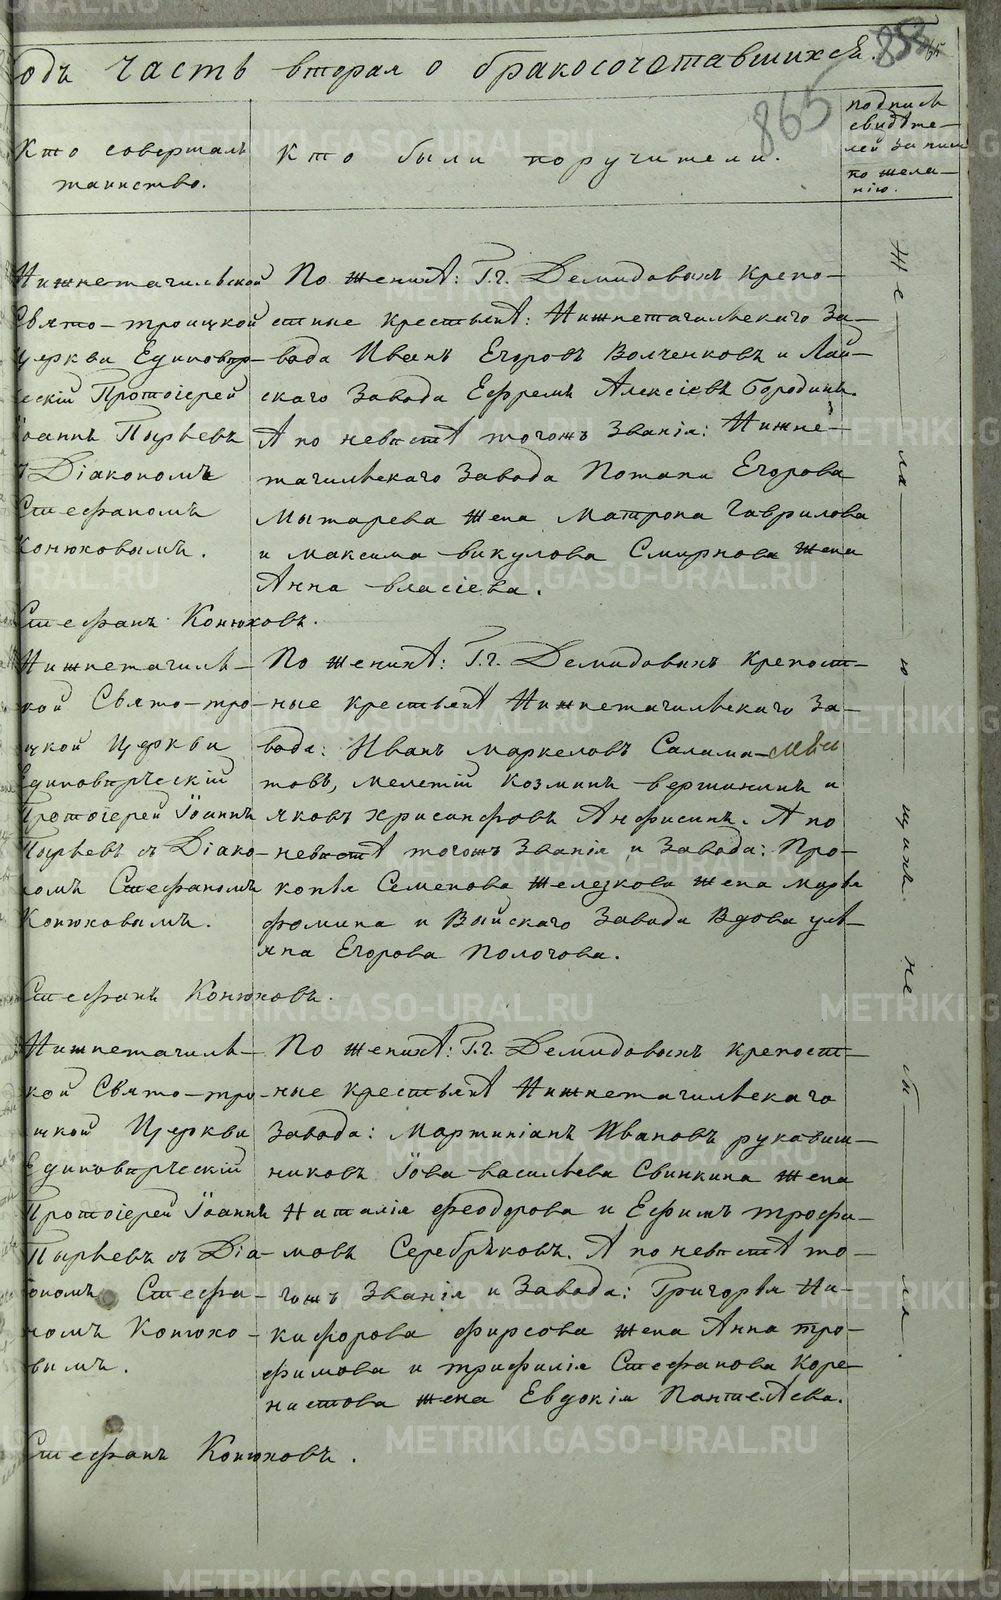 одъ часть вторая о бракосочетавшихся.
853
865
Кто совершалъ
таинство.
Кто были поручители.
подпись
свидѣте-
лей записи
по жела-
нію.
Нижнетагильской
Свято-троицкой
церкви Единовѣр-
ескій Протоіерей
Іоаннъ Пырьевъ
съ Діакономъ
Стефаномъ
Конюховымъ.
Стефанъ Конюховъ.
По женихѣ: Г.г. Демидовыхъ крепо-
стные крестьянѣ: Нижнетагильскаго за-
вода Иванъ Егоровъ Волченковъ и Лай-
скаго завода Ефремъ Алексіевъ Бородинъ.
А по невѣстѣ тогожъ званія: Нижне-
тагильскаго завода Потапа Егорова
Мытарева жена Матрона Гаврилова
и Максима Викулова Смирнова жена
Анна Власіева.
Нижнетагиль-
кой Свято-тро-
цкой Церкви
Единовѣрческій
Протоіерей Іоаннъ
Пырьевъ съ Діако-
номъ Стефаномъ
Конюховымъ.
Стефанъ Конюховъ.
По женихѣ: Г.г. Демидовыхъ крепост-
ные крестьянѣ Нижнетагильскаго за-
вода: Иванъ Маркеловъ Салама-
товъ, Мелетій Козминъ Вершининъ и
Яковъ Хрисанфовъ Анфисинъ. А по
невѣстѣ тогожъ званія и завода: Про-
копья Семенова Железкова жена Марѳа
Фомина и Выйскаго завода вдова Уль-
яна Егорова Пологова.
Нижнетагиль-
кой Свято-тро-
цкой Церкви
Единовѣрческій
Протоіерей Іоаннъ
Пырьевъ съ Діа-
кономъ Стефа-
номъ Конюхо-
вымъ.
Стефанъ Конюховъ.
По женихѣ: Г.г. Демидовыхъ крепост-
ные крестьянѣ Нижнетагильскаго
завода: Мартиніанъ Ивановъ Рукавиш-
никовъ Іова Васильева Свинкина жена
Наталія Феодорова и Ефимъ Трофи-
мовъ Серебряковъ. А по невѣстѣ то-
гожъ званія и завода: Григорья Ни-
кифорова Фирсова жена Анна Тро-
фимова и Трифилія Стефанова Коре-
нистова жена Евдокія Пантелѣева.
Желающихъ не было.
METRIKI.GASO-URAL.RU